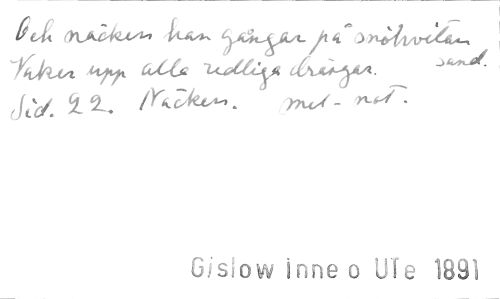 Och näcken han gångar på snöhvitan
sand.
Vaker upp alla redliga drängar.
Sid. 22. Näcken. mel-not.
Gislow inne o Ute 1891